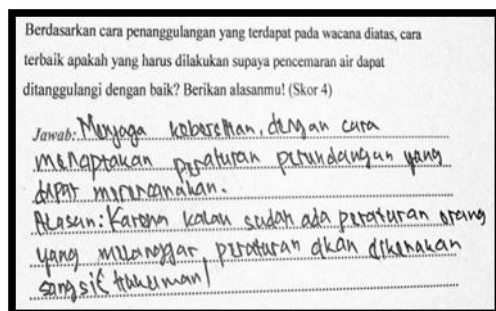 Berdasarkan cara penanggulangan yang terdapat pada wacana diatas, cara
terbaik apakah yang harus dilakukan supaya pencemaran air dapat
ditanggulangi dengan baik? Berikan alasanmu! (Skor 4)
Jawab: Menjaga kebersihan, dengan cara
menciptakan peraturan perundangan yang
dapat merencanakan.
Alasan: Karena kalau sudah ada peraturan orang
yang melanggar peraturan akan dikenakan
sangsi hukuman